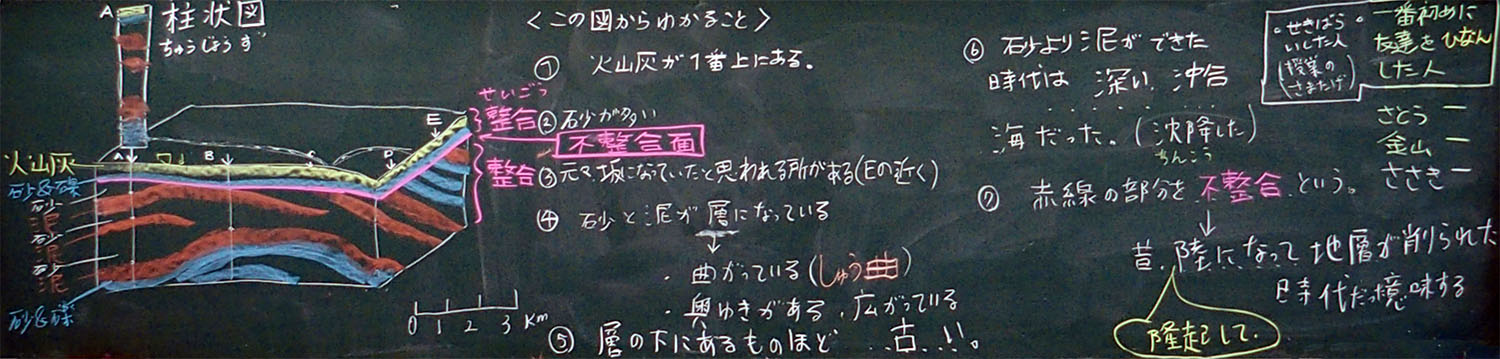 A
柱状図
ちゅうじょうず
A
B
C
D
E
火山灰
砂&礫
砂
泥
砂
泥
砂
泥
砂&礫
せいごう
整合
不整合面
整合
0 1 2 3 Km
<この図からわかること>
① 火山灰が1番上にある。
② 砂が多い
③ 元々坂になっていたと思われる所がある(Eの近く)
④ 砂と泥が層になっている
・曲がっている(しゅう曲)
・奥ゆきがある、広がっている
⑤ 層の下にあるものほど 古い。
⑥ 砂より泥ができた
時代は 深い 沖合
海だった。(沈降した)
ちんこう
⑦ 赤線の部分を不整合という。
昔、陸になって地層が削られた
時代だっ意味する
隆起して、
・せきばら
いした人
(授業の
さまたげ)
・一番初めに
友達をひなん
した人
さとう 一
金山 一
ささき 一